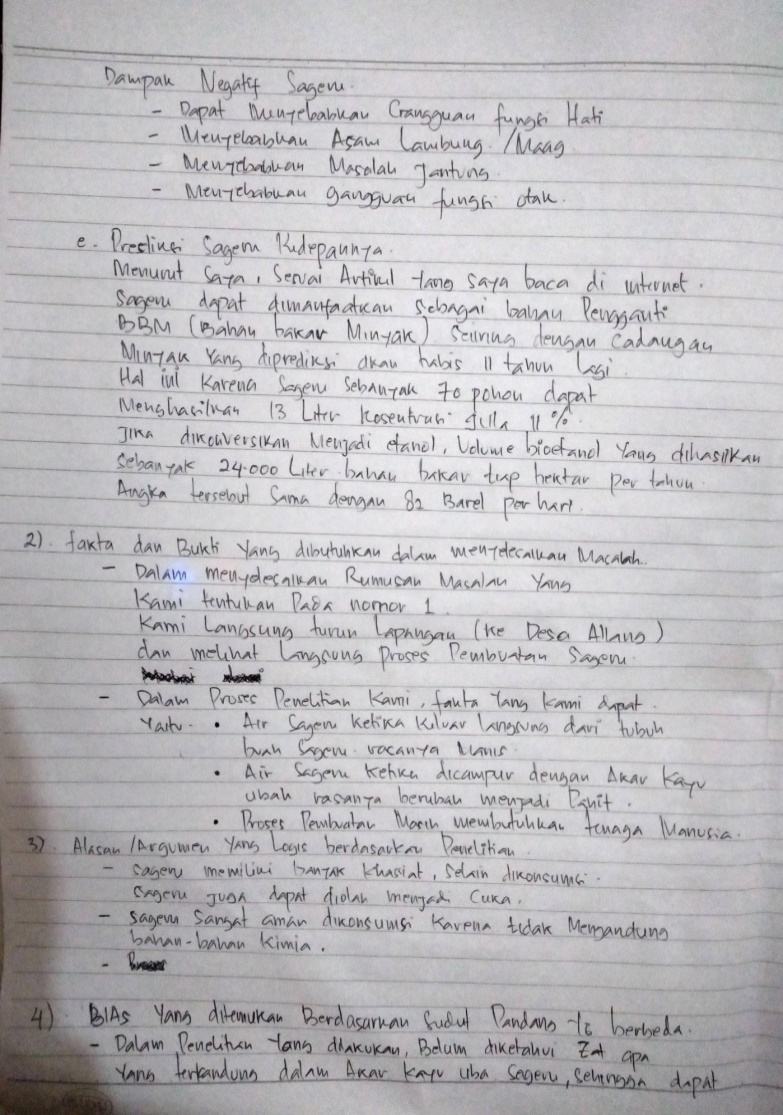 Dampak Negatif Sageru.
- Dapat Menyebabkan Gangguan fungsi Hati
- Menyebabkan Asam Lambung /Maag
- Menyebabkan Masalah Jantung.
- Menyebabkan gangguan fungsi otak.
e. Prediksi Sageru Kedepannya.
Menurut Saya, Sesuai Artikel yang saya baca di internet.
Sageru dapat dimanfaatkan Sebagai bahan Pengganti
BBM (Bahan bakar Minyak) Seiring dengan Cadangan
Minyak Yang diprediksi akan habis 11 tahun lagi.
Hal ini Karena Sageru Sebanyak 70 pohon dapat
Menghasilkan 13 Liter Kosentrasi gula 11%.
Jika dikonversikan Menjadi etanol, Volume bioetanol Yang dihasilkan
Sebanyak 24.000 Liter bahan bakar tiap hektar Per tahun.
Angka tersebut Sama dengan 82 Barel per hari.
2). fakta dan Bukti Yang dibutuhkan dalam menyelesaikan Masalah.
- Dalam menyelesaikan Rumusan Masalah Yang
Kami tentukan Pada nomor 1.
Kami Langsung turun Lapangan (Ke Desa Allang)
dan melihat Langsung Proses Pembuatan Sageru.
- Dalam Proses Penelitian Kami, fakta Yang Kami dapat.
Yaitu • Air Sageru Ketika Keluar langsung dari tubuh
buah Sageru rasanya Manis.
• Air Sageru Ketika dicampur dengan Akar Kayu
ubah rasanya berubah menjadi Pahit.
• Proses Pembuatan Masih membutuhkan tenaga Manusia.
3). Alasan /Argumen Yang Logis berdasarkan Penelitian
- Sageru memiliki banyak khasiat, Selain dikonsumsi.
Sageru Juga dapat diolah menjadi Cuka.
- Sageru Sangat aman dikonsumsi Karena tidak Mengandung
bahan-bahan Kimia.
-
4). BIAs Yang ditemukan Berdasarkan Sudut Pandang Yg berbeda.
- Dalam Penelitian Yang dilakukan, Belum diketahui Zat apa
Yang terkandung dalam Akar Kayu uba Sageru, Sehingga dapat